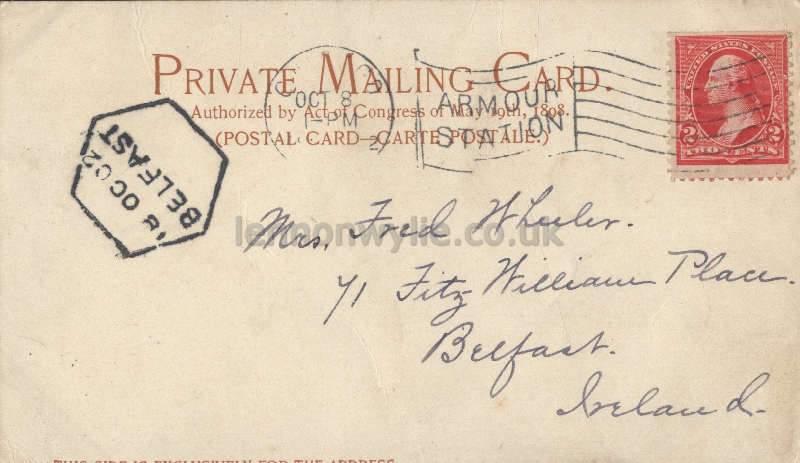 PRIVATE MAILING CARD.
Authorized by Act of Congress of May 19th, 1898.
(POSTAL CARD—CARTE POSTALE.)
OCT 8
1-PM
2
ARMOUR
STATION
UNITED STATES
2 2
TWO CENTS
BELFAST
18 OC 02
lennonwylie.co.uk
Mrs. Fred Wheeler.
71 Fitz William Place.
Belfast.
Ireland.
THIS SIDE IS EXCLUSIVELY FOR THE ADDRESS